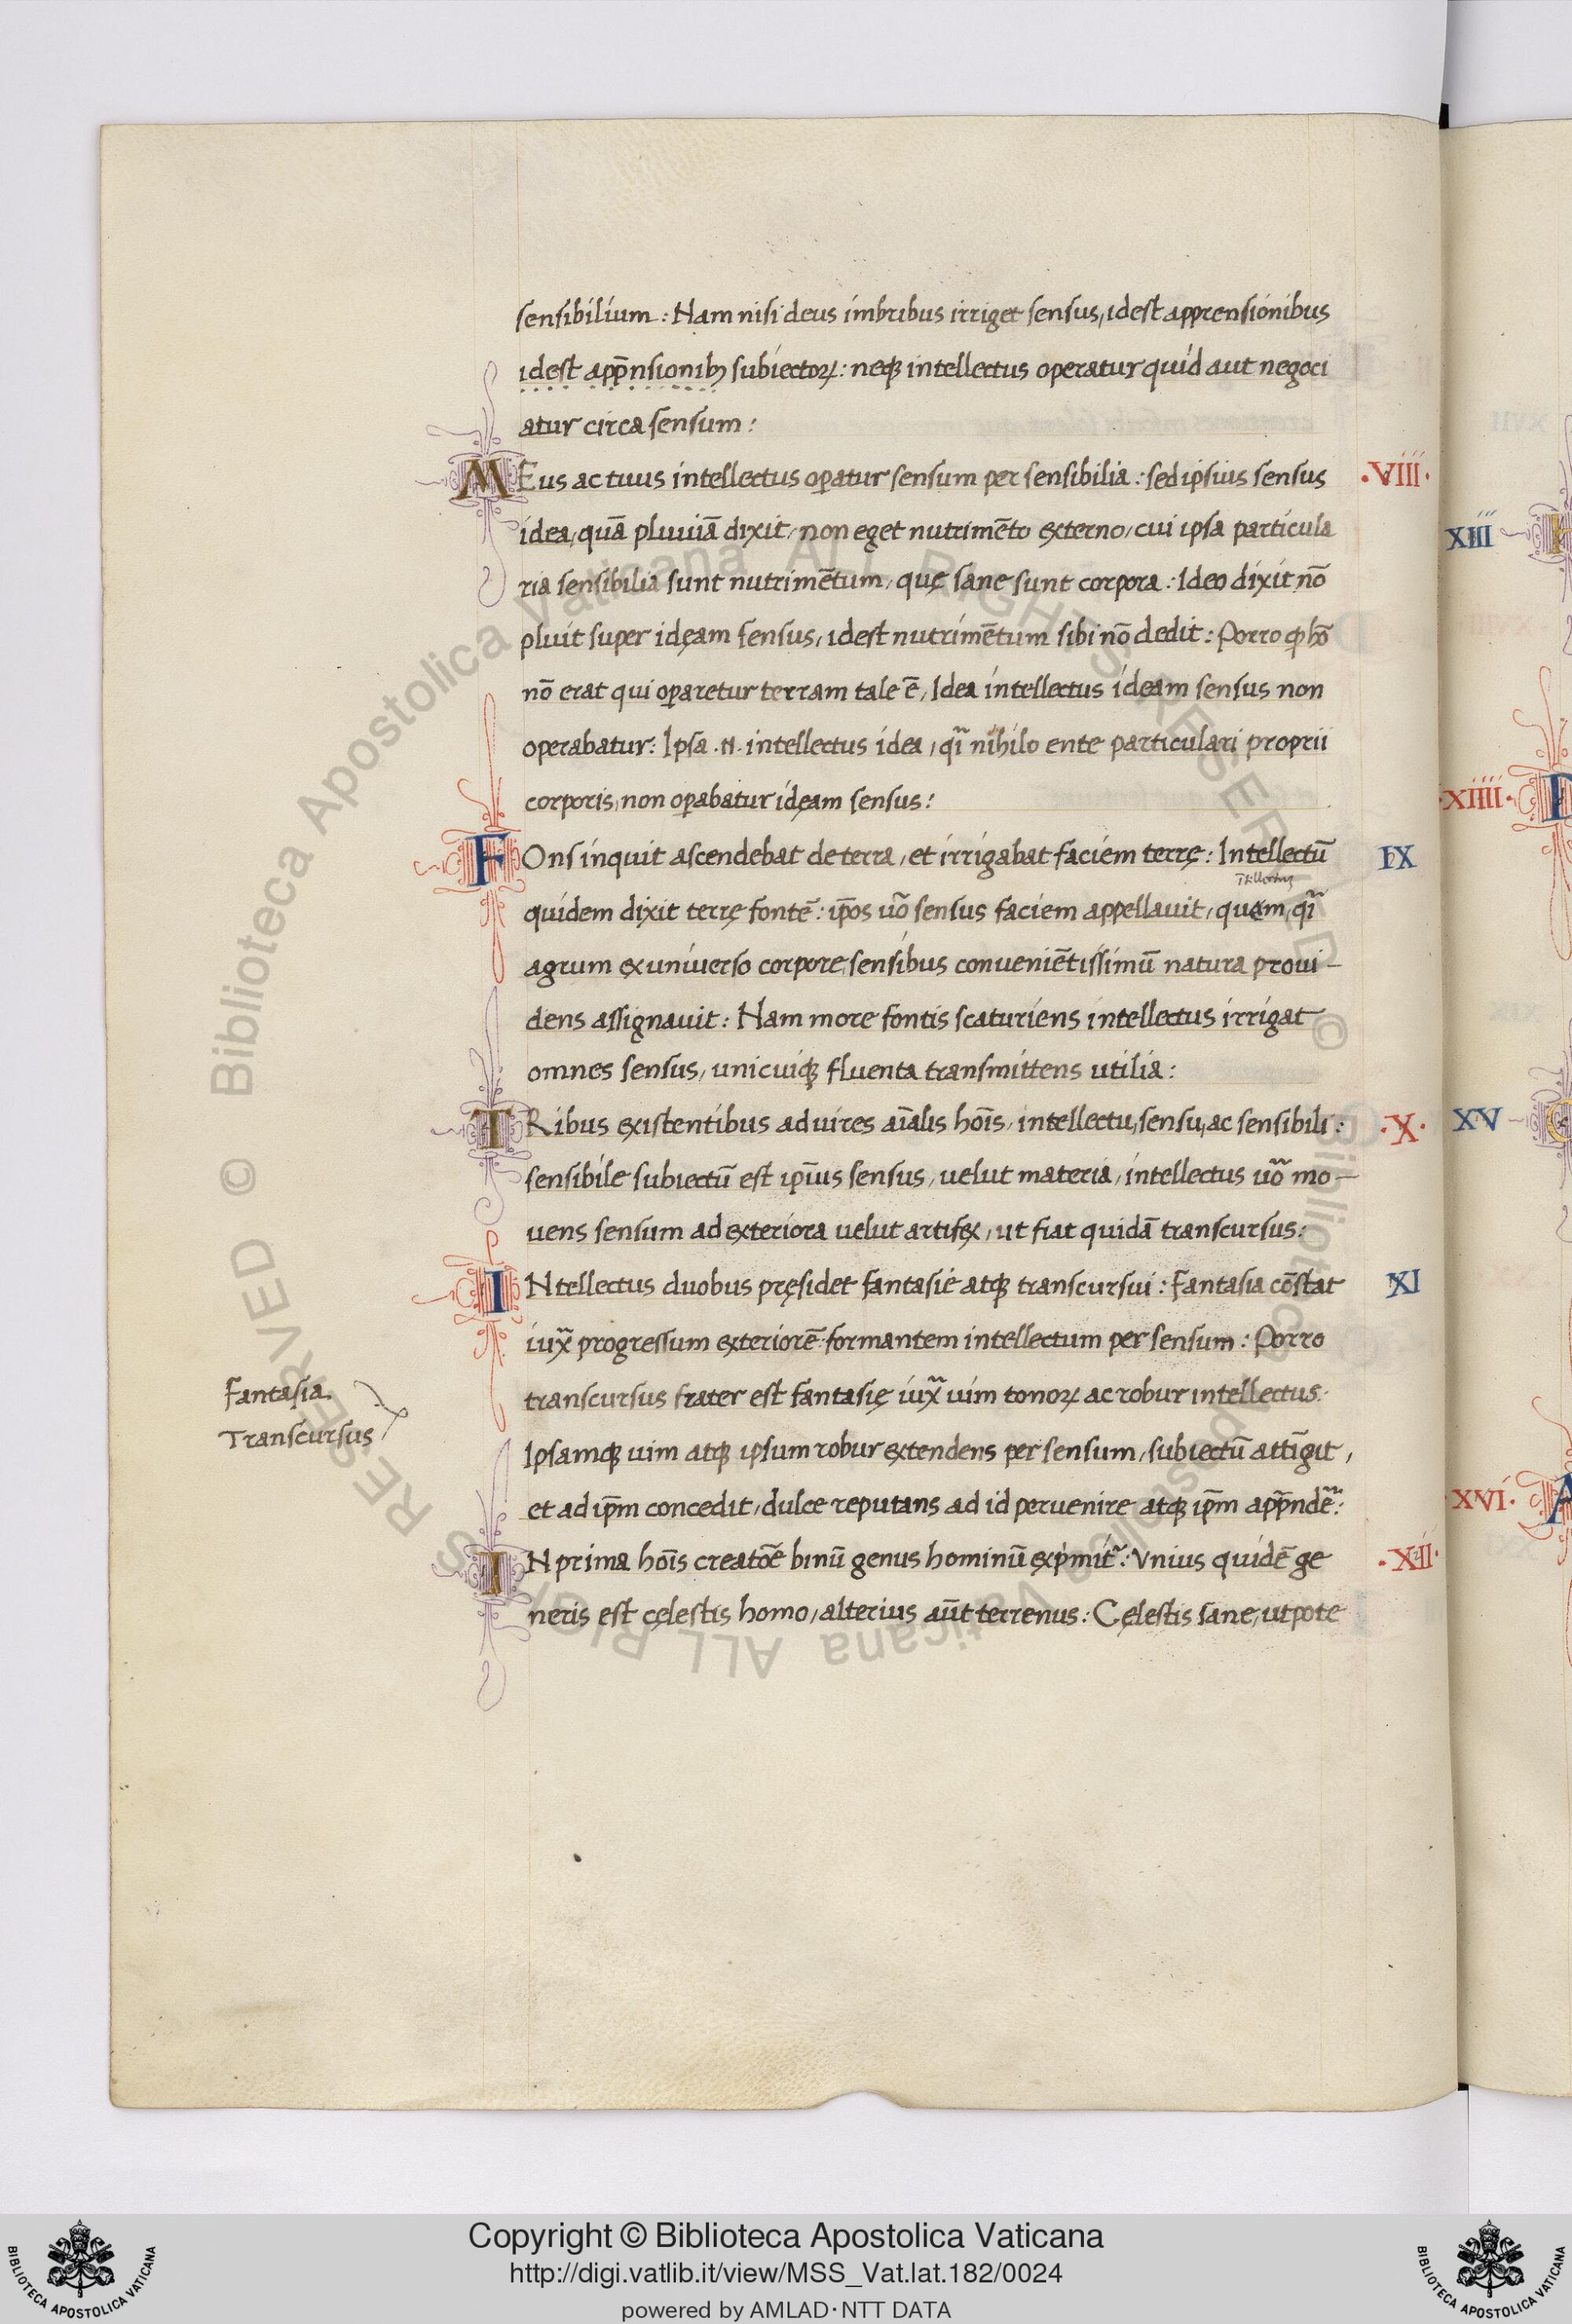 sensibilium: Nam nisi deus imbribus irriget sensus, idest apprensionibus
idest appñsionibȝ subiectoꝝ: neqȝ intellectus operatur quid aut negoci
atur circa sensum:
MEus ac tuus intellectus oꝑatur sensum per sensibilia: sed ipsius sensus
·VIII·
idea, quā pluuiā dixit, non eget nutrimēto externo, cui ipsa particula
ria sensibilia sunt nutrimētum, quę sane sunt corpora: Ideo dixit nō
pluit super idęam sensus, idest nutrimētum sibi nō dedit: Porro ꝙ hō
nō erat qui oꝑaretur terram tale ē, Idea intellectus ideam sensus non
operabatur: Ipsa .n. intellectus idea, qī nihilo ente particulari proprii
corporis, non oꝑabatur idęam sensus:
FOns inquit ascendebat de terra, et irrigabat faciem terrę: Intellectū
IX
ītellectus
quidem dixit terrę fontē: ip̄os uō sensus faciem appellauit, quem, qī
agrum ex uniuerso corpore, sensibus conueniētissimū natura proui-
dens assignauit: Nam more fontis scaturiens intellectus irrigat
omnes sensus, unicuiqȝ fluenta transmittens utilia:
TRibus existentibus ad uires aīalis hoīs, intellectu, sensu, ac sensibili:
·X·
sensibile subiectū est ip̄ius sensus, uelut materia, intellectus uō mo-
uens sensum ad exteriora uelut artifex, ut fiat quidā transcursus:
INtellectus duobus pręsidet fantasie atqȝ transcursui: Fantasia cōstat
XI
iux̄ progressum exteriorē formantem intellectum per sensum: Porro
transcursus frater est fantasię iux̄ uim tonoꝝ ac robur intellectus:
Fantasia
Transcursus
Ipsamqȝ uim atqȝ ipsum robur extendens per sensum, subiectū attīgit,
et ad ip̄m concedit, dulce reputans ad id peruenire atqȝ ip̄m app̄ndē:
IN prima hoīs creatōē binū genus hominū exp̄mit: Vnius quidē ge
·XII·
neris est cęlestis homo, alterius aūt terrenus: Cęlestis sane, utpote
XIII
·XIIII·
XV
XVI·
Copyright © Biblioteca Apostolica Vaticana
http://digi.vatlib.it/view/MSS_Vat.lat.182/0024
powered by AMLAD·NTT DATA
BIBLIOTECA APOSTOLICA VATICANA
BIBLIOTECA APOSTOLICA VATICANA
© Biblioteca Apostolica Vaticana ALL RIGHTS RESERVED
© Biblioteca Apostolica Vaticana ALL RIGHTS RESERVED